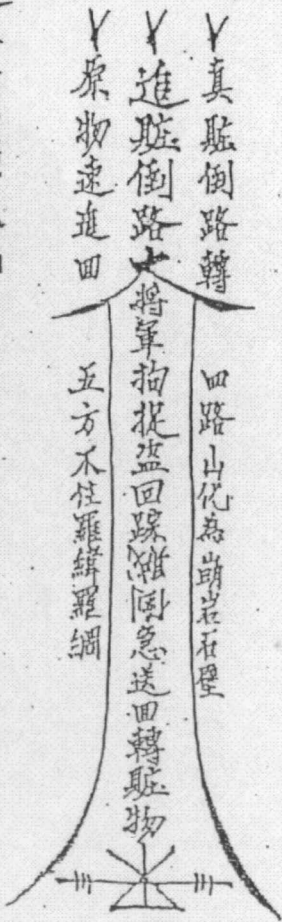 真賍倒路轉
進賍倒路
原物速進回
四路山化為崩岩石壁
將軍拘捉盜回踪賊倒急送回轉賍物
五方不住羅緯羅網